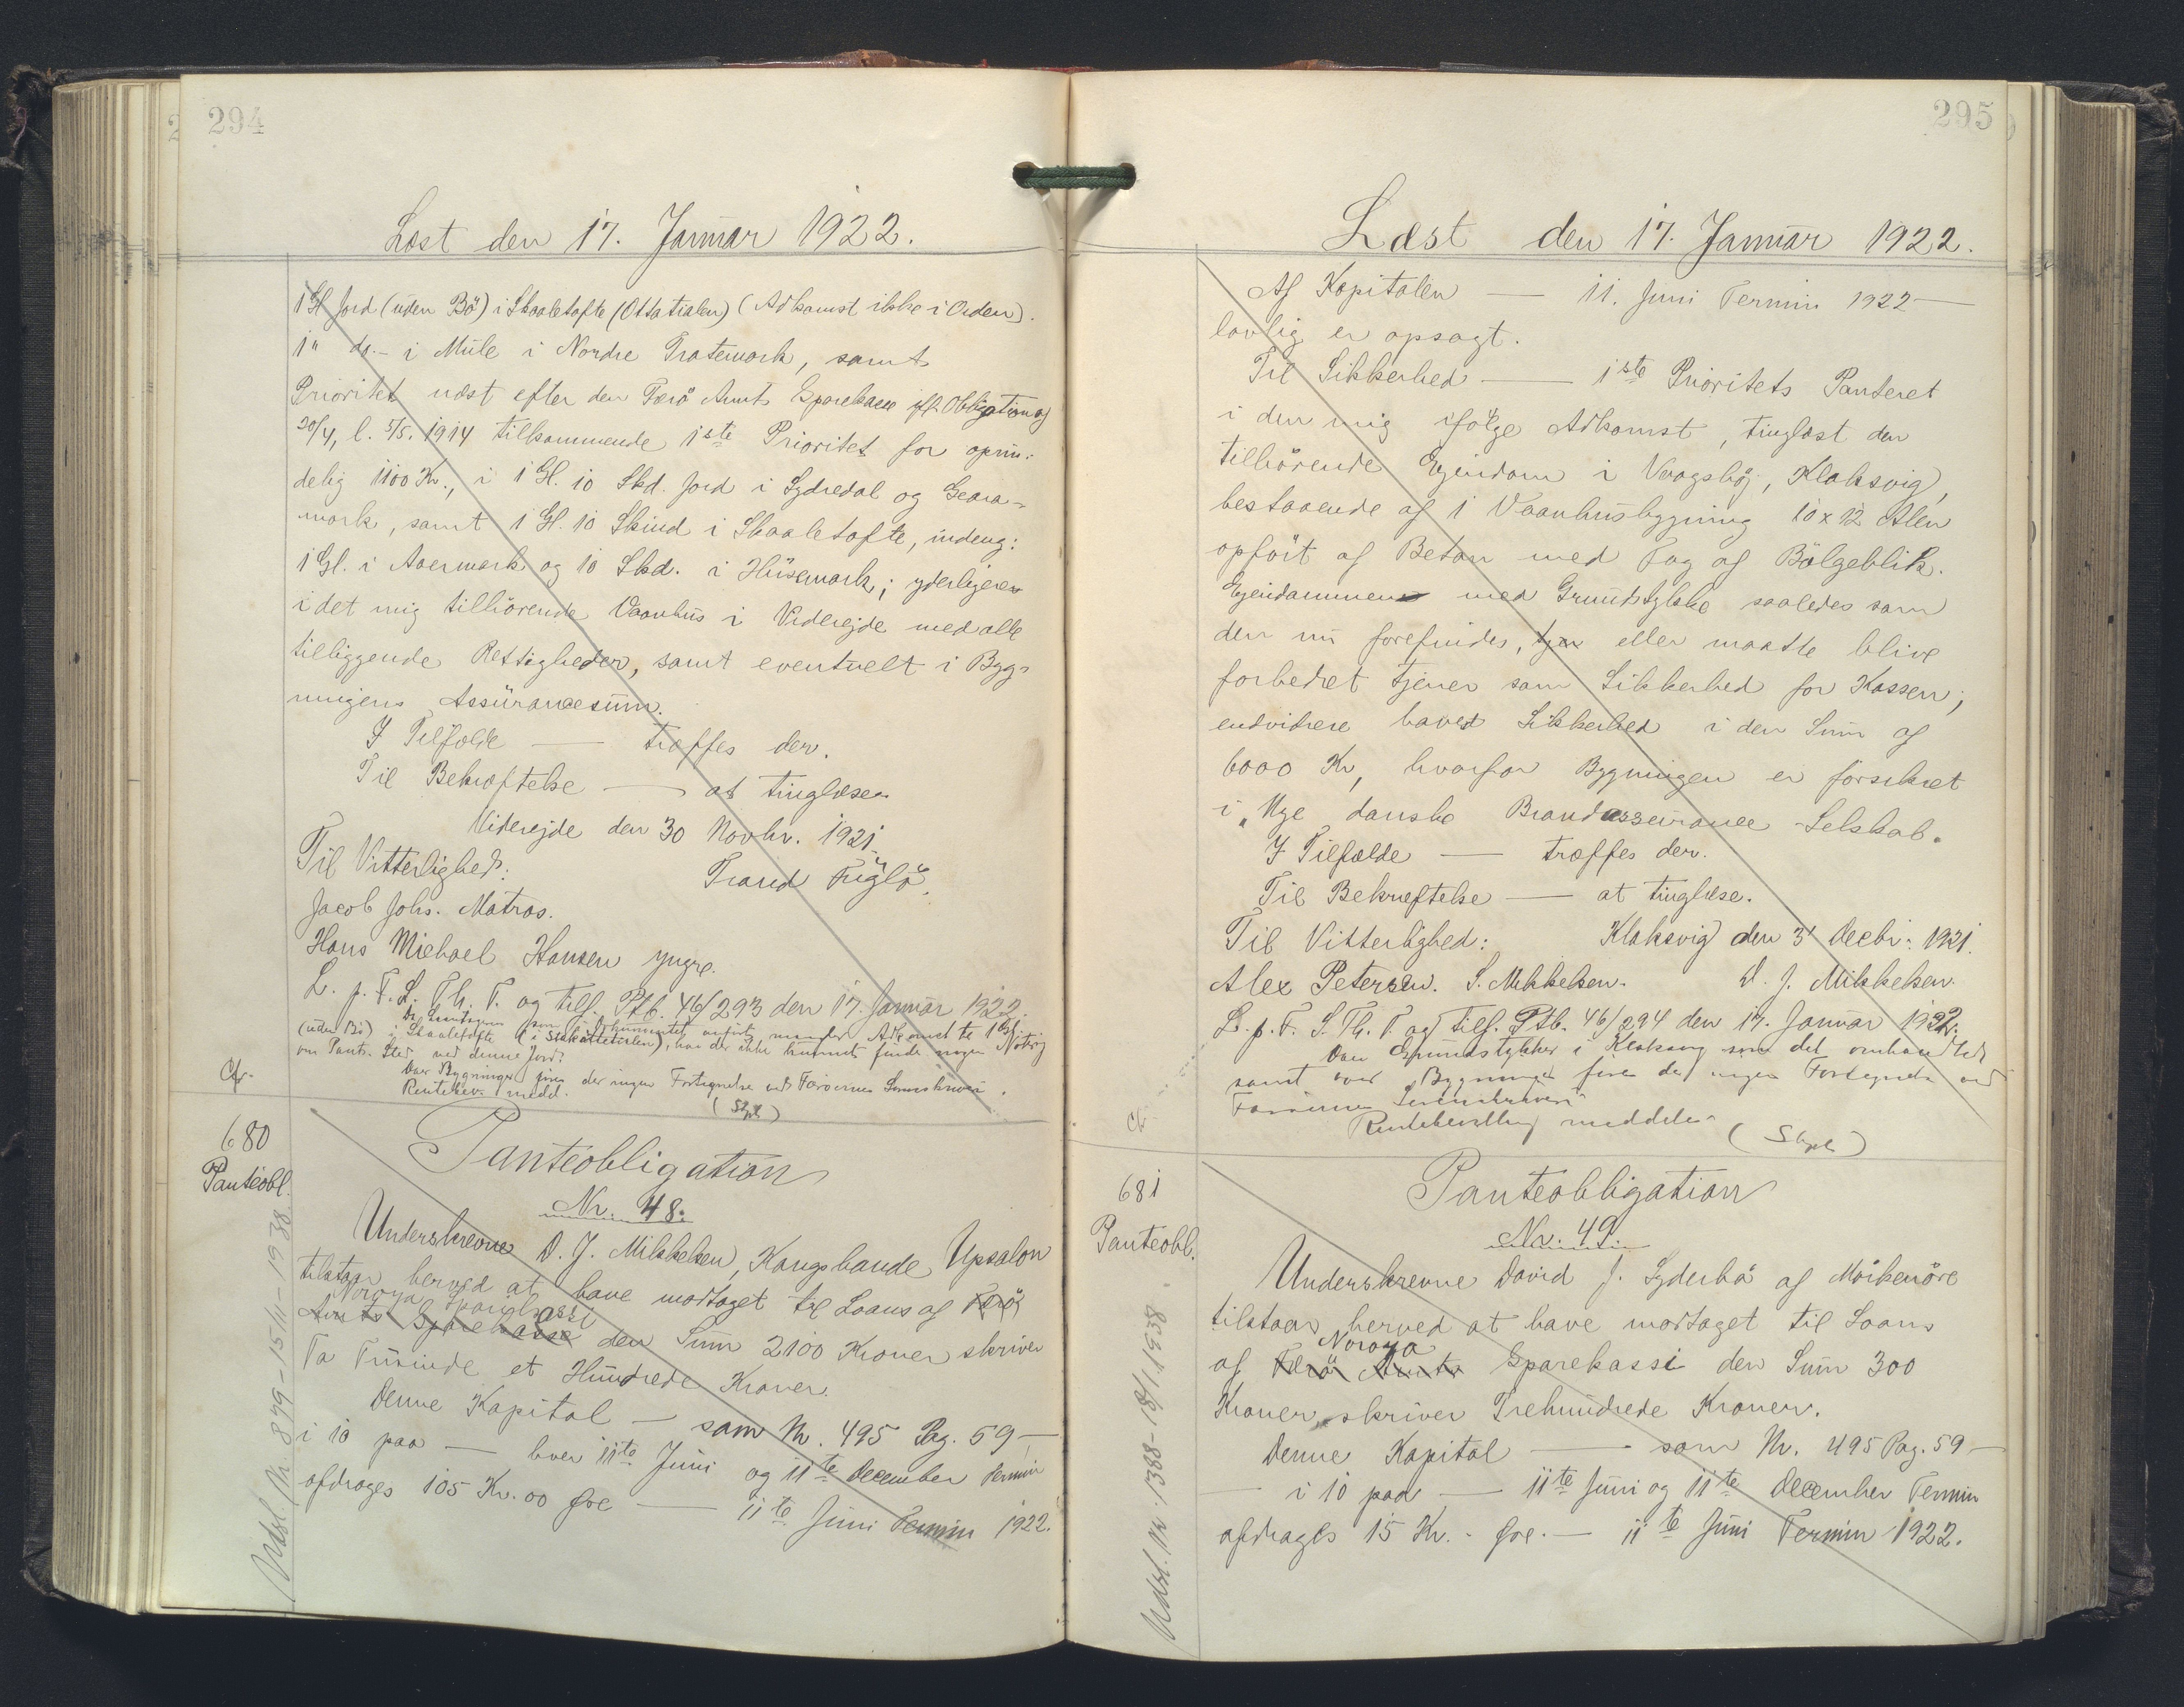 294
Læst den 17. Januar 1922.
1 Gl Jord (uden Bö) i Skaaletofte (Ottatialen) (Adkomst ikke i Orden).
1 " do. - i Mule i Nordre Tratemork, samt
Prioritet næst efter den Færö Amts Sparekasse ifl. Obligation af
20/4, l. 5/5. 1914 tilkommende 1ste Prioritet for oprin-
delig 1100 Kr., i 1 Gl. 10 Skd. Jord i Sydredal og Geara-
mork, samt 1 Gl. 10 Skind i Skaaletofte, indeng:
1 Gl. i Aoermork og 10 Skd. i Husemork; yderligere
i det mig tilhörende Vaanhus i Viderejde med alle
tilliggende Rettigheder, samt eventuelt i Byg-
ningens Assurancesum.
I Tilfælde — træffes der.
Til Bekræftelse — at tinglæse.
Viderejde den 30 Novbr. 1921.
Til Vitterlighed: Trond Fuglö.
Jacob Johs. Matras.
Hans Michael Hansen yngre.
L. p. F. S. Th. T. og tilf. Ptb. 46/293 den 17. Januar 1922.
(uden Bö) i Skaaletofte
om Pant. Sted ved denne Jord.
Over Bygninger föres der ingen Fortegnelse ved Færöernes Sorenskriveri.
Rentebev. medd.
680
Panteobl.
Panteobligation
Nr. 48.
Underskrevne D. J. Mikkelsen, Kongsbonde Upsalon
tilstaar herved at have modtaget til Laans af Færö
Noroya Sparikassi
Amts Sparekasse den Sum 2100 Kroner skriver
To Tusinde et Hundrede Kroner.
Denne Kapital — som Nr. 495 Pag. 59 —
i 10 paa — hver 11te Juni og 11te December Termin
afdrages 105 Kr. 00 Øre — 11te Juni Termin 1922.
Udsl. Nr. 879 - 15/11 - 1938.
295
Læst den 17. Januar 1922.
Af Kapitalen — 11. Juni Termin 1922 —
lovlig er opsagt.
Til Sikkerhed — 1ste Prioritets Panteret
i den mig ifölge Adkomst, tinglæst den
tilhörende Ejendom i Vaagsböj, Klaksvig,
bestaaende af 1 Vaanhusbygning 10 x 12 Alen
opfört af Beton med Tag af Bölgeblik.
Ejendommen med Grundstykke saaledes som
den nu forefindes, tjen eller maatte blive
forbedret tjener som Sikkerhed for Kassen;
endvidere haves Sikkerhed i den Sum af
6000 Kr, hvorfor Bygningen er forsikret
i "Nye danske Brandassurance-Selskab.
I Tilfælde — træffes der.
Til Bekræftelse — at tinglæse.
Til Vitterlighed: Klaksvig den 31 Decbr. 1921.
Alex Petersen. S. Mikkelsen. D. J. Mikkelsen.
L. p. F. S. Th. T. og tilf. Ptb. 46/294 den 17. Januar 1922.
Over Grundstykker i Klaksvig som det omhandlede
samt over Bygninger föres der ingen Fortegnelse ved
Færöernes Sorenskriveri
Rentebevilling meddeles
681
Panteobl.
Panteobligation
Nr. 49.
Underskrevne David J. Syderbö af Mörkenöre
tilstaar herved at have modtaget til Laans
Noroya
af Færö Amts Sparekassi den Sum 300
Kroner, skriver Trehundrede Kroner.
Denne Kapital — som Nr. 495 Pag. 59 —
— i 10 paa — 11te Juni og 11te December Termin
afdrages 15 Kr. - Øre. — 11te Juni Termin 1922.
Udsl. Nr. 1388 - 18/1 1938